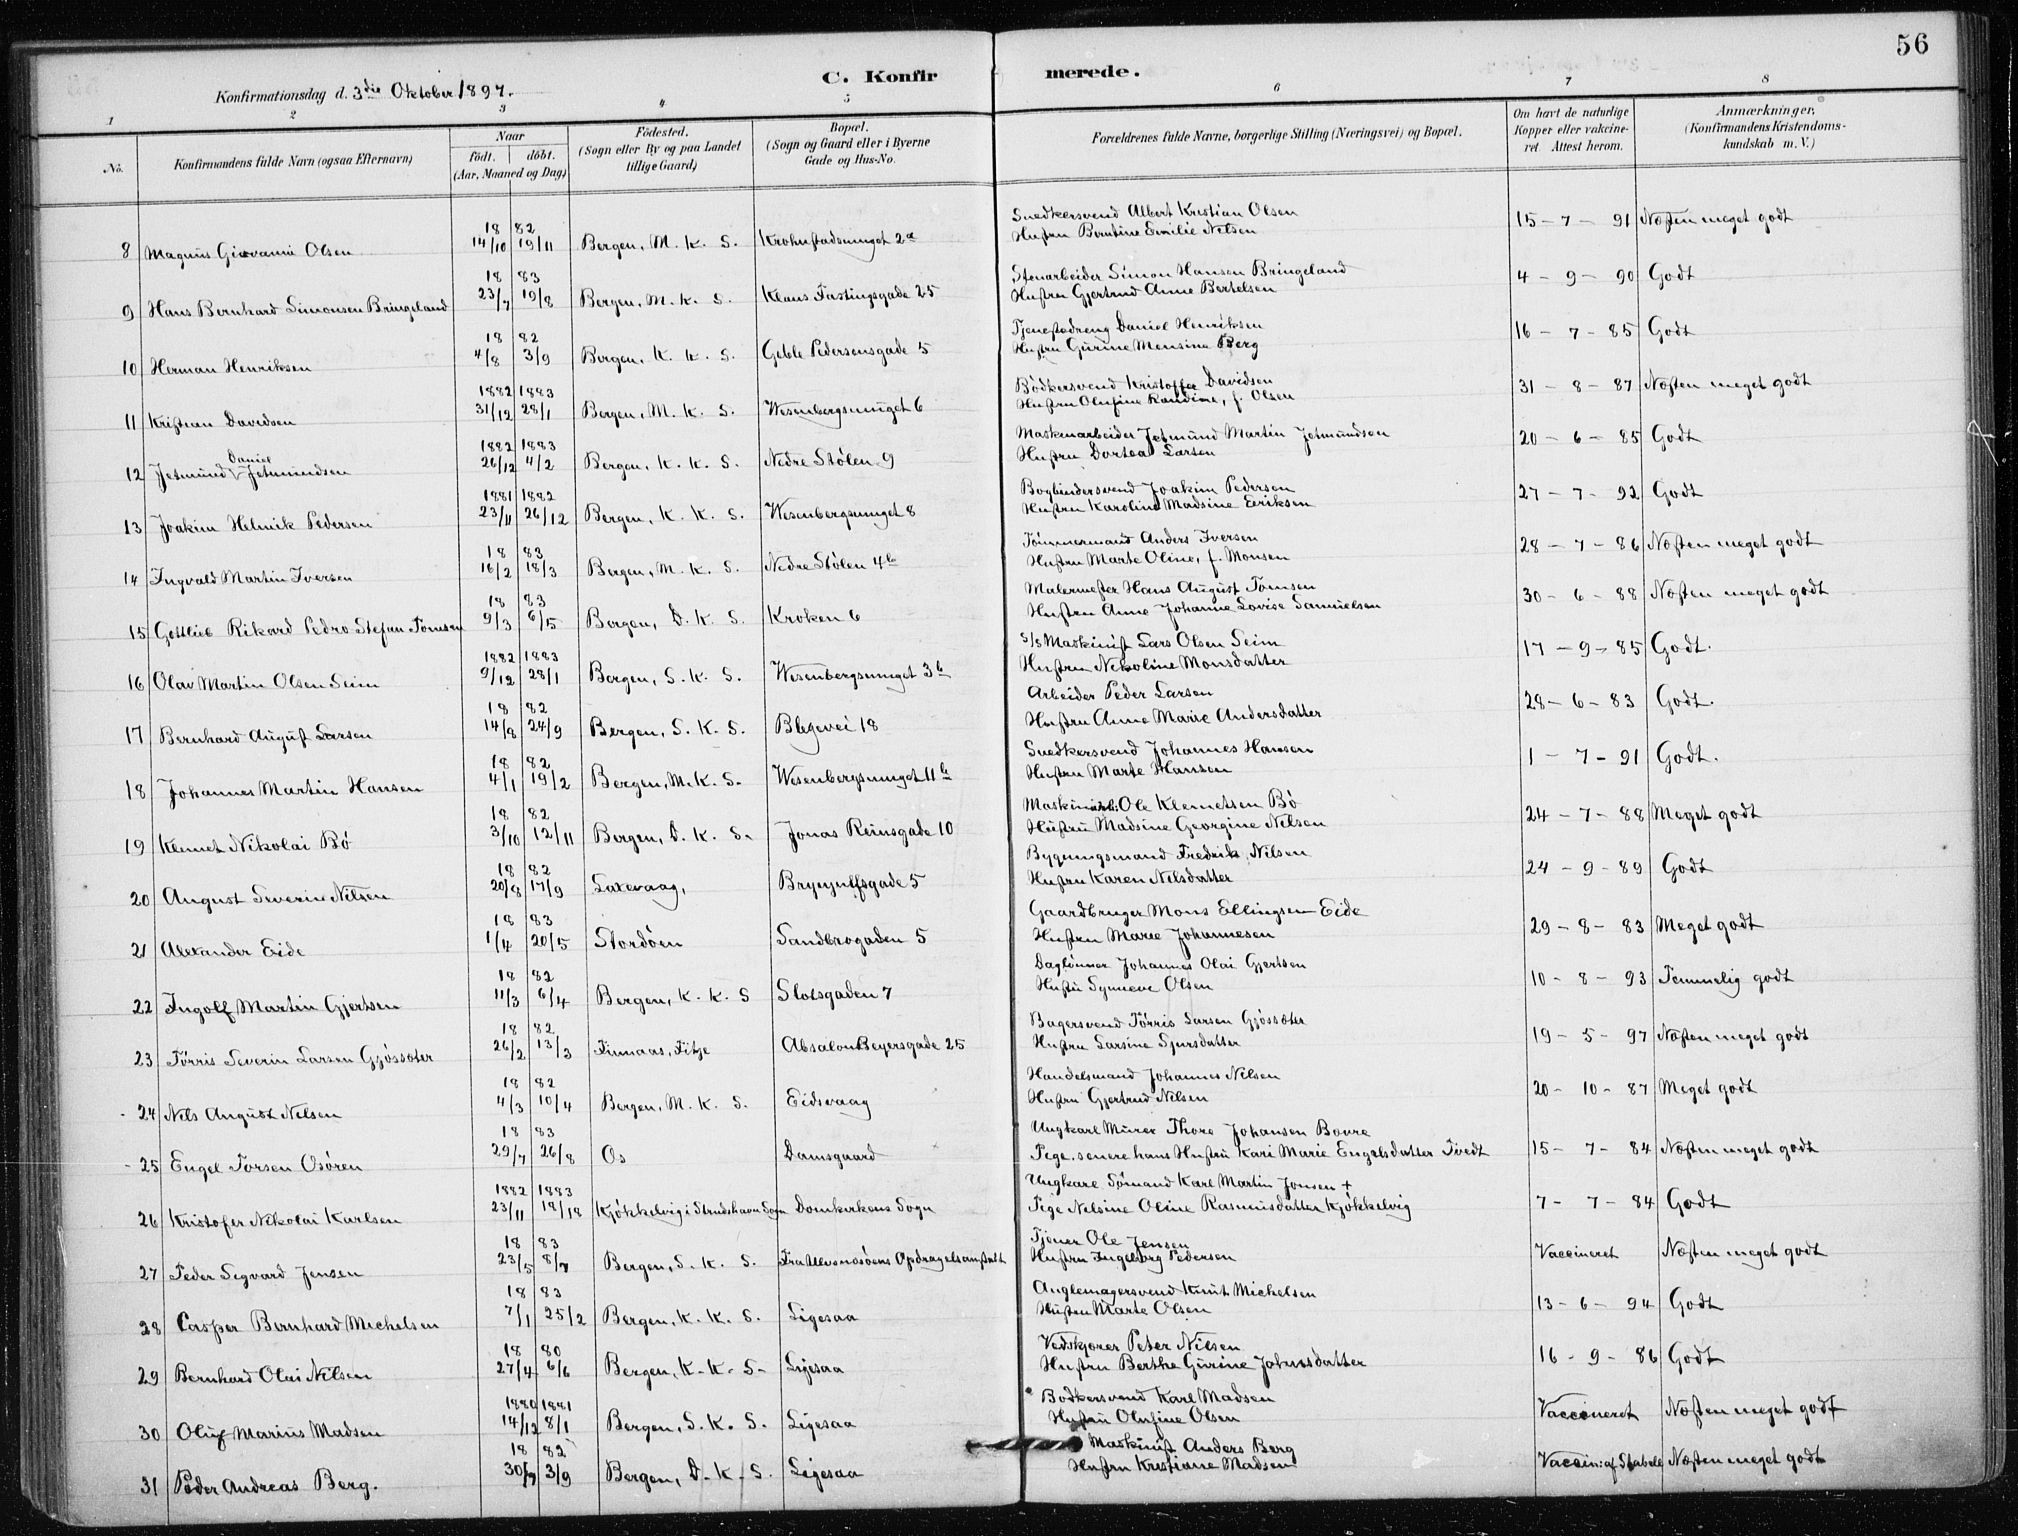 56
C. Konfirmerede.
Konfirmationsdag d. 3die Oktober 1897.
1 2 3 4 5 6 7 8
No. Konfirmandens fulde Navn (ogsaa Efternavn) Naar født. døbt. (Aar, Maaned og Dag) Fødested. (Sogn eller By og paa Landet tillige Gaard) Bopæl. (Sogn og Gaard eller i Byerne Gade og Hus-No. Forældrenes fulde Navne, borgerlige Stilling (Næringsvei) og Bopæl. Om havt de naturlige Kopper eller vakcineret. Attest herom. Anmærkninger, (Konfirmandens Kristendomskundskab m. V.)
8 Magnus Giovanni Olsen 18 82 14/10 19/11 Bergen, M. K. S. Krohnstadsmuget 2a Snedkersvend Albert Kristian Olsen
Hustru Berntine Emilie Nilsen 15 - 7 - 91 Næsten meget godt
9 Hans Bernhard Simonsen Bringeland 18 83 23/7 19/8 Bergen, M. K. S. Klaus Fastingsgade 25 Stenarbeider Simon Hansen Bringeland
Hustru Gjertrud Anne Bertelsen 4 - 9 - 90 Godt
10 Herman Henriksen 18 82 4/8 3/9 Bergen, K. K. S. Geble Pedersensgade 5 Tjenestedreng Daniel Henriksen
Hustru Gurine Monsine Berg 16 - 7 - 85 Godt
11 Kristian Davidsen 1882 1883 31/12 28/1 Bergen, M. K. S. Wesenbergsmuget 6 Bødkersvend Kristoffer Davidsen
Hustru Olufine Randine, f. Olsen 31 - 8 - 87 Næsten meget godt
12 Jetmund Daniel Jetmundsen 1882 1883 26/12 4/2 Bergen, K. K. S. Nedre Stølen 9 Maskinarbeider Jetmund Martin Jetmundsen
Hustru Dortea Larsen 20 - 6 - 85 Godt
13 Joakim Helmik Pedersen 1881 1882 23/11 26/12 Bergen, K. K. S. Wesenbergsmuget 8 Bogbindersvend Joakim Pedersen
Hustru Karoline Madsine Eeriksen 27 - 7 - 92 Godt
14 Ingvald Martin Iversen 18 83 16/2 18/3 Bergen, M. K. S. Nedre Stølen 4b Tømmermand Anders Iversen
Hustru Marte Oline, f. Monsen 28 - 7 - 86 Næsten meget godt
15 Gottlieb Rikard Pedro Stefan Tomsen 18 83 9/3 6/5 Bergen, D. K. S. Kroken 6 Malermester Hans August Tomsen
Hustru Anne Johanne Lovise Samuelsen 30 - 6 - 88 Næsten meget godt
16 Olav Martin Olsen Seim 1882 1883 9/12 28/1 Bergen, S. K. S. Wesenbergsmuget 3b S/S Maskinist Lars Olsen Seim
Hustru Nikoline Monsdatter 17 - 9 - 85 Godt.
17 Bernhard August Larsen 18 82 14/8 24/9 Bergen, S. K. S. Blegevei 18 Arbeider Peder Larsen
Hustru Anne Marie Andersdatter 28 - 6 - 83 Godt.
18 Johannes Martin Hansen 18 82 4/1 19/2 Bergen, M. K. S. Wesenbergsmuget 11b Snedkersvend Johannes Hansen
Hustru Marte Hansen 1 - 7 - 91 Godt.
19 Klemet Nikolai Bø 18 82 3/10 12/11 Bergen, D. K. S. Jonas Reinsgade 10 Ole Klemetsen Bø
Hustru Madsine Georgine Nilsen 24 - 7 - 88 Meget godt
20 August Severin Nilsen 18 82 20/8 17/9 Laxevaag, Brynjulfsgade 5 Bygningsmand Fredrik Nilsen
Hustru Karen Nilsdatter 24 - 9 - 89 Godt
21 Alexander Eide 18 83 1/4 20/5 Stordøen Sandbrogaden 5 Gaardbruger Mons Ellingsen Eide
Hustru Marie Johannesen 29 - 8 - 83 Meget godt
22 Ingolf Martin Gjertsen 18 82 11/3 6/4 Bergen, K. K. S Slotsgaden 7 Daglønner Johannes Olai Gjertsen
Hustru Synneve Olsen 10 - 8 - 93 Temmelig godt
23 Tørris Severin Larsen Gjøssæter 18 82 26/2 13/3 Finnaas, Fitje Absalon Beyersgade 25 Bagersvend Tørris Larsen Gjøssæter
Hustru Larsine Sjursdatter 19 - 5 - 97 Næsten meget godt
24 Nils August Nilsen 18 82 4/3 10/4 Bergen, M. K. S. Eidsvaag Handelsmand Johannes Nilsen
Hustru Gjertrud Nilsen 20 - 10 - 87 Meget godt
25 Engel Torsen Osøren 18 83 29/7 26/8 Os Damsgaard Ungkarl Murer Thore Johansen Bovre
Pige, senere hans Hustru Kari Marie Engelsdatter Tvedt 15 - 7 - 84 Næsten meget godt
26 Kristofer Nikolai Karlsen 1882 1883 23/11 Kjøkkelvig i Strudshavn Sogn Domkirkens Sogn Ungkare Sømand Karl Martin Jonsen +
Pige Nelsine Oline Rasmusdatter Kjøkkelvig 7 - 7 - 84 Godt
27 Peder Sigvard Jensen 18 83 23/5 8/7 Bergen, S. K. S. Fra Ulvsnesøens Opdragelsanstalt Tjener Ole Jensen
Hustru Ingeborg Pedersen Vaccineret Næsten meget godt
28 Casper Bernhard Michelsen 18 83 7/1 25/2 Bergen, K. K. S. Ligesaa Anglemagersvend Knut Michelsen
Hustru Marte Olsen 13 - 6 - 94 Godt
29 Bernhard Olai Nilsen 18 80 27/4 6/6 Bergen, K. K. S. Ligesaa Vedskjærer Peter Nilsen
Hustru Berthe Gurine Johnsdatter 16 - 9 - 86 Godt
30 Oluf Marius Madsen 1880 1881 14/12 8/1 Bergen, S. K. S. Ligesaa Bødkersvend Karl Madsen
Hustru Olufine Olsen Vaccineret Næsten meget godt
31 Peder Andreas Berg. 18 82 30/7 3/9 Bergen, D. K. S. Ligesaa Maskinist Anders Berg
Hustru Kristiane Madsen Vaccin: af Næsten meget godt